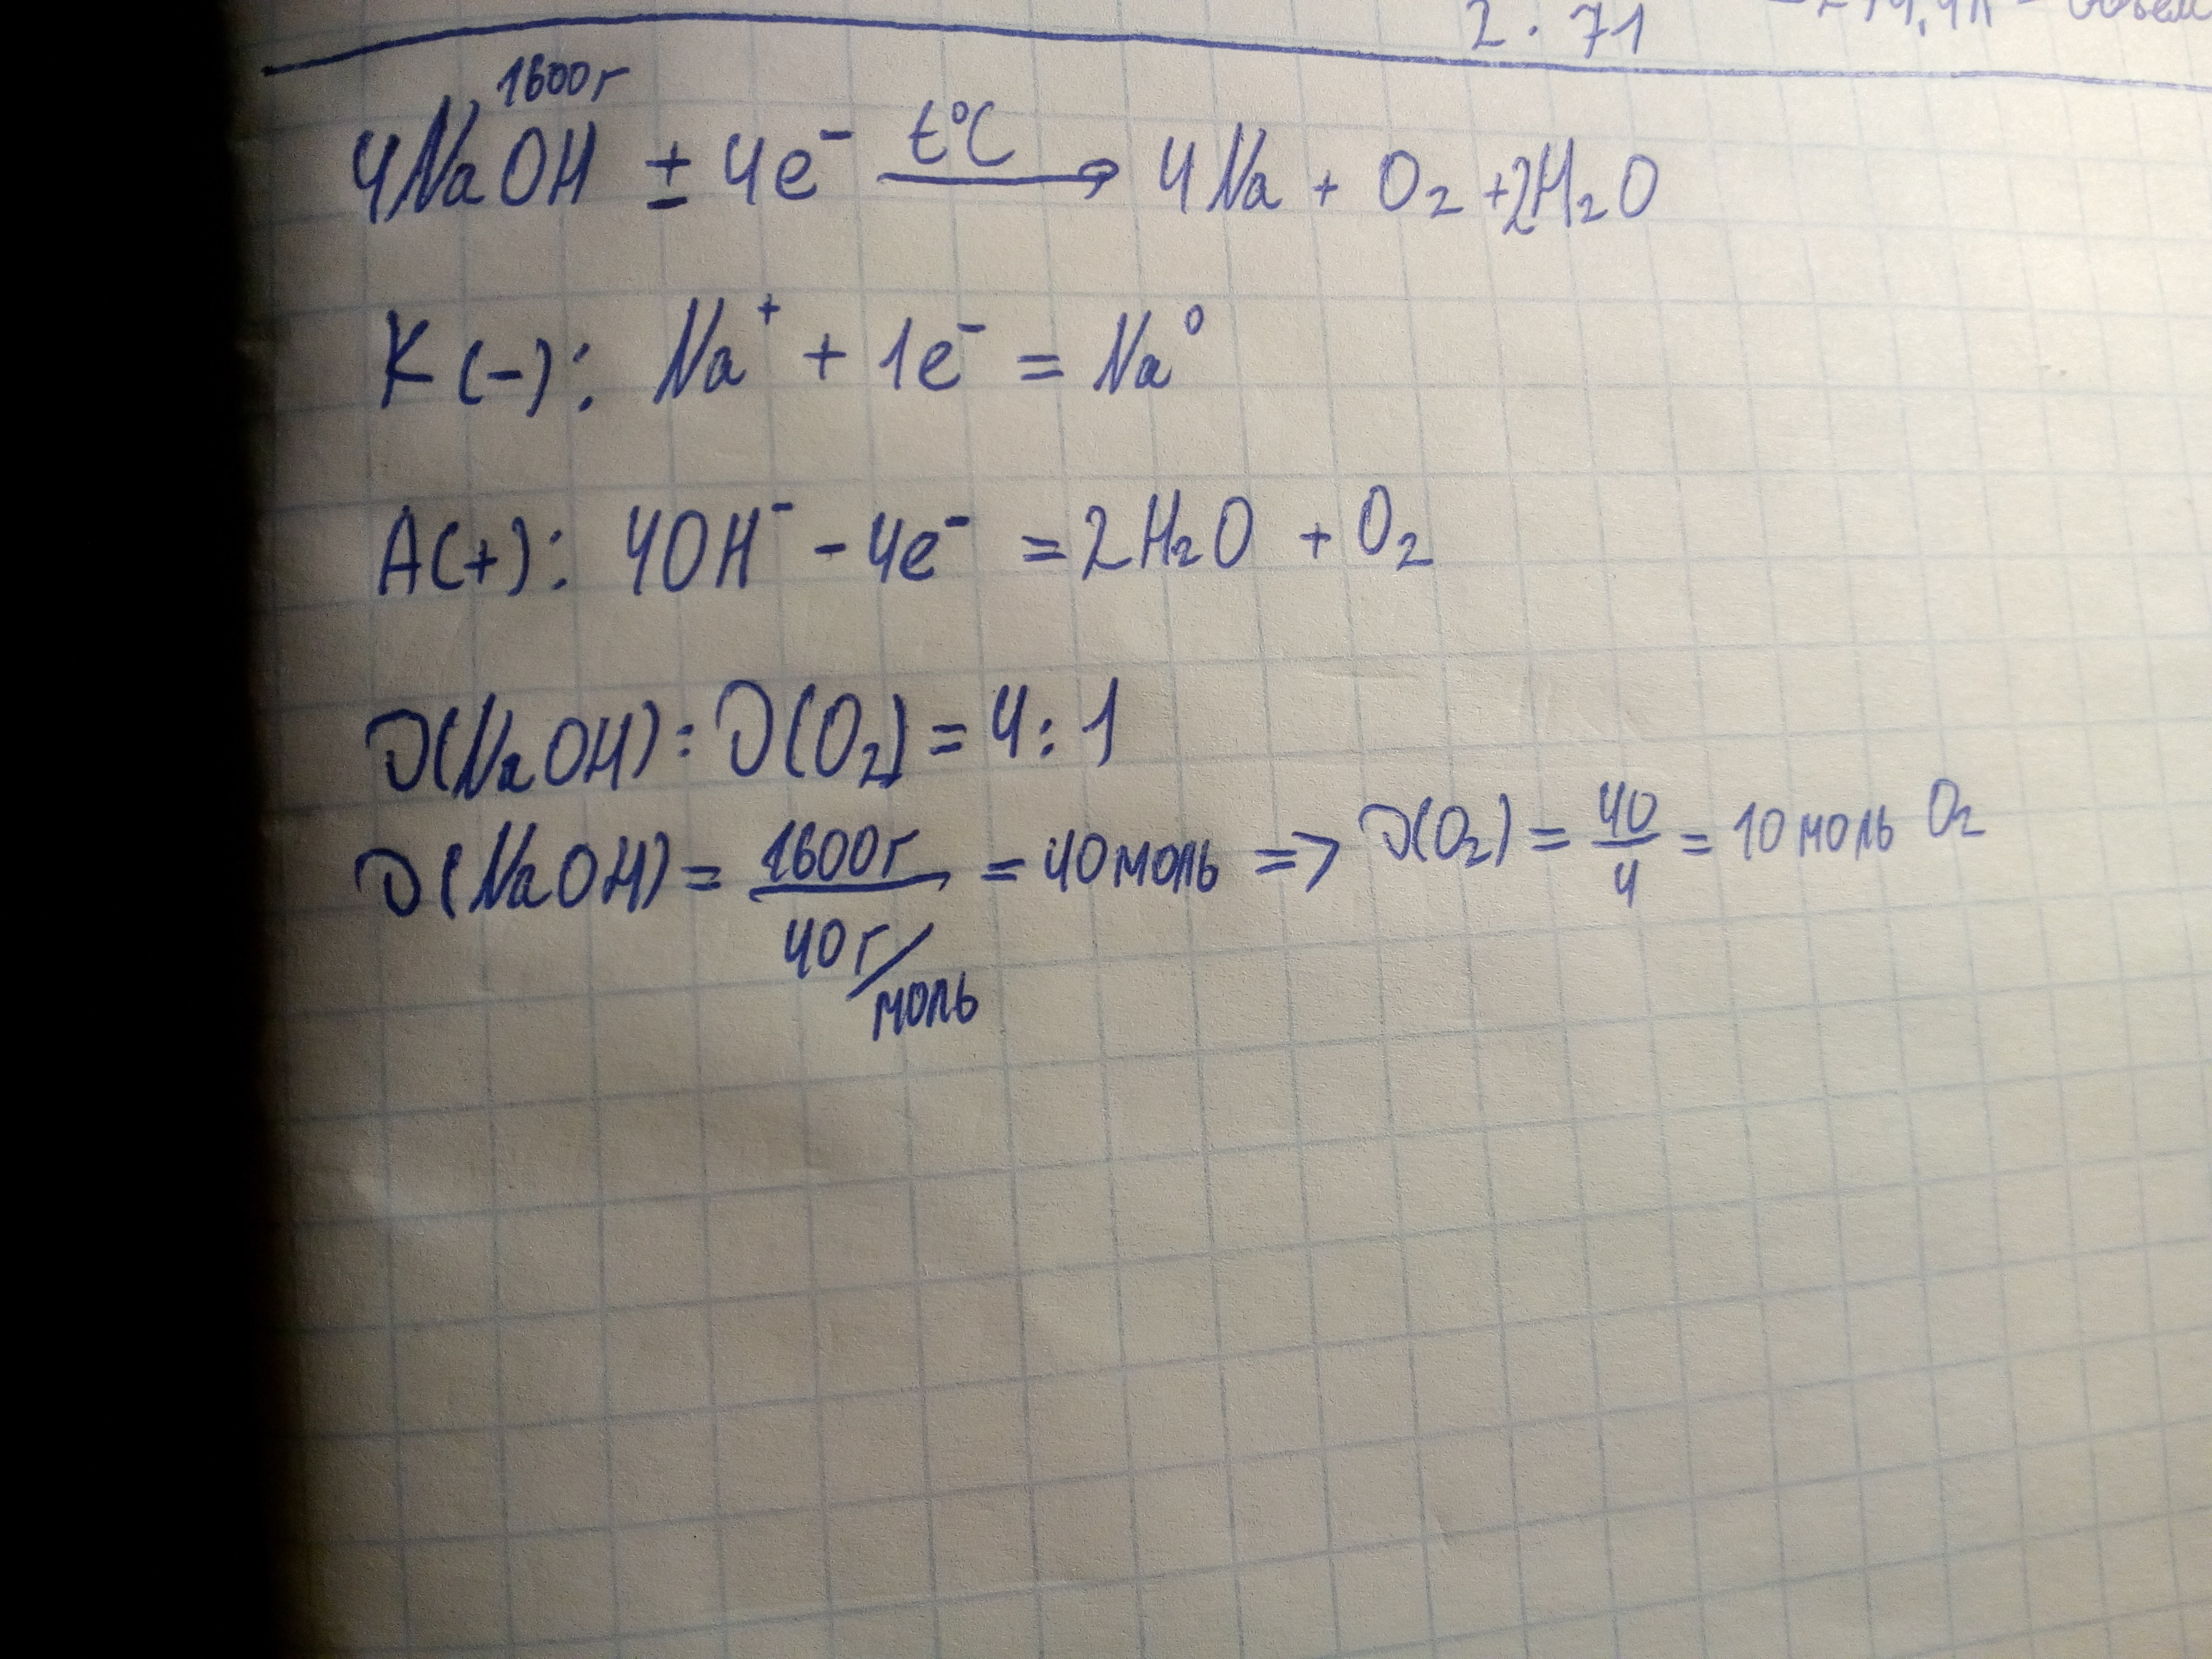 2 · 71
1600г
4NaOH ± 4e⁻ —t°C→ 4Na + O₂ + 2H₂O
K(-): Na⁺ + 1e⁻ = Na⁰
A(+): 4OH⁻ - 4e⁻ = 2H₂O + O₂
ν(NaOH) : ν(O₂) = 4 : 1
ν(NaOH) = 1600г / 40г/моль = 40 моль => ν(O₂) = 40/4 = 10 моль O₂